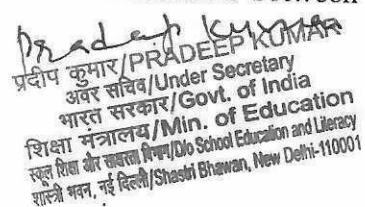 Pradeep Kumar
प्रदीप कुमार/PRADEEP KUMAR
अवर सचिव/Under Secretary
भारत सरकार/Govt. of India
शिक्षा मंत्रालय/Min. of Education
स्कूल शिक्षा और साक्षरता विभाग/D/o School Education and Literacy
शास्त्री भवन, नई दिल्ली/Shastri Bhawan, New Delhi-110001